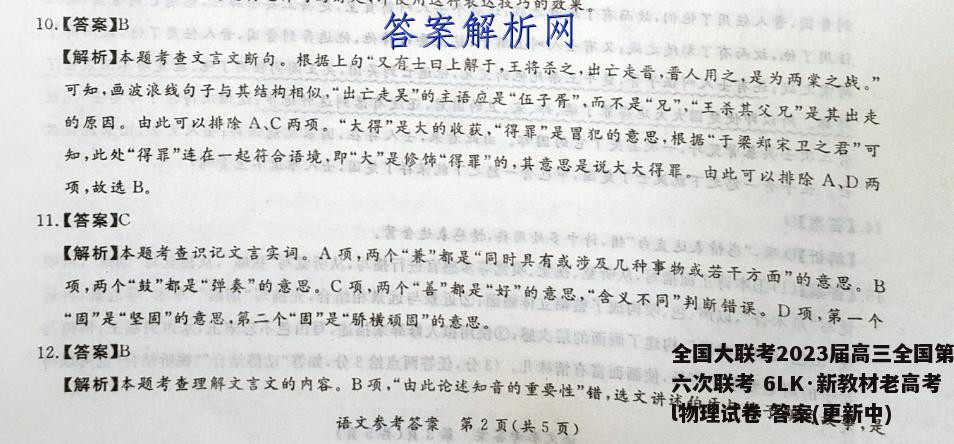 使用这种表达技巧的效果。
10.【答案】B
答案解析网
【解析】本题考查文言文断句。根据上句“又有士曰上解于,王将杀之,出亡走晋,晋人用之,是为两棠之战。”
可知,画波浪线句子与其结构相似,“出亡走吴”的主语应是“伍子胥”,而不是“兄”,“王杀其父兄”是其出走
的原因。由此可以排除A、C两项。“大得”是大的收获,“得罪”是冒犯的意思,根据“于梁郑宋卫之君”可
知,此处“得罪”连在一起符合语境,即“大”是修饰“得罪”的,其意思是说大大得罪。由此可以排除A、D两
项,故选B。
11.【答案】C
【解析】本题考查识记文言实词。A项,两个“兼”都是“同时具有或涉及几种事物或若干方面”的意思。B
项,两个“鼓”都是“弹奏”的意思。C项,两个“善”都是“好”的意思,“含义不同”判断错误。D项,第一个
“固”是“坚固”的意思,第二个“固”是“骄横顽固”的意思。
12.【答案】B
【解析】本题考查理解文言文的内容。B项,“由此论述知音的重要性”错,选文讲述
语文参考答案 第2页(共5页)
全国大联考2023届高三全国第
六次联考 6LK·新教材老高考
l物理试卷 答案(更新中)